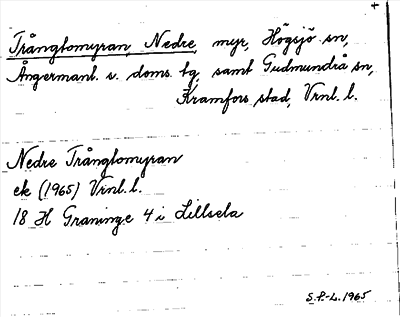 +
Trångtomyran, Nedre, myr, Högsjö sn,
Ångermanl. s. doms. tg, samt Gudmundrå sn,
Kramfors stad, Vrnl. l.
Nedre Trångtomyran
ek (1965) Vrnl. l.
18 H Graninge 4 i Lillsela
S.P.-L. 1965